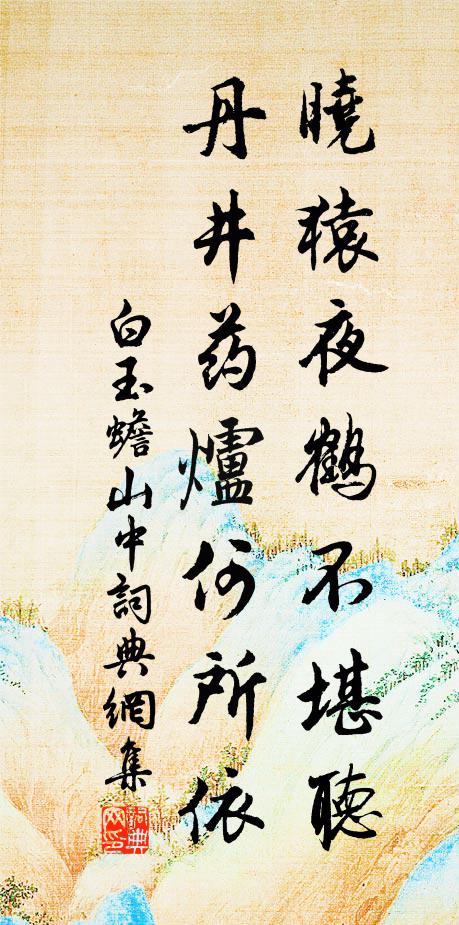 曉猿夜鶴不堪聽
丹井药爐何所依
白玉蟾山中詞典網集
詞典網印